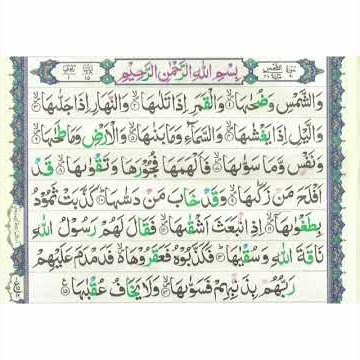 بِسْمِ اللهِ الرَّحْمٰنِ الرَّحِيْمِ
وَالشَّمْسِ وَضُحٰىهَا ۞ وَالْقَمَرِ اِذَا تَلٰىهَا ۞ وَالنَّهَارِ اِذَا جَلّٰىهَا ۞
وَالَّيْلِ اِذَا يَغْشٰىهَا ۞ وَالسَّمَآءِ وَمَا بَنٰىهَا ۞ وَالْاَرْضِ وَمَا طَحٰىهَا ۞
وَنَفْسٍ وَّمَا سَوّٰىهَا ۞ فَاَلْهَمَهَا فُجُوْرَهَا وَتَقْوٰىهَا ۞ قَدْ
اَفْلَحَ مَنْ زَكّٰىهَا ۞ وَقَدْ خَابَ مَنْ دَسّٰىهَا ۞ كَذَّبَتْ ثَمُوْدُ
بِطَغْوٰىهَآ ۞ اِذِ انْۢبَعَثَ اَشْقٰىهَا ۞ فَقَالَ لَهُمْ رَسُوْلُ اللهِ
نَاقَةَ اللهِ وَسُقْيٰهَا ۞ فَكَذَّبُوْهُ فَعَقَرُوْهَا ۞ فَدَمْدَمَ عَلَيْهِمْ
رَبُّهُمْ بِذَنْۢبِهِمْ فَسَوّٰىهَا ۞ وَلَا يَخَافُ عُقْبٰهَا ۞